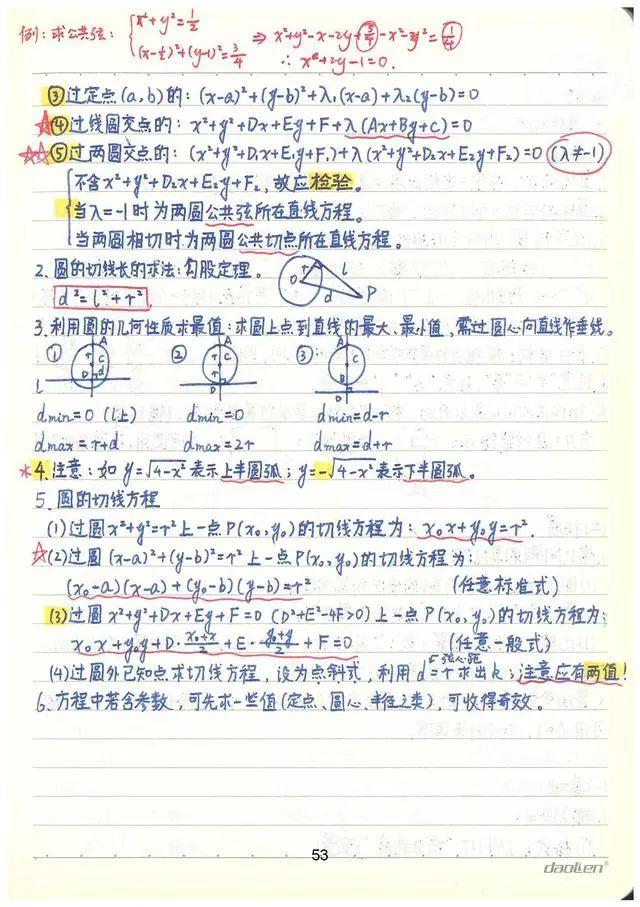 例：求公共弦： { x²+y²=1/2
(x-1/2)²+(y-1)²=3/4 ⇒ x²+y²-x-2y+5/4-x²-y²=1/4
∴ x+2y-1=0.
③过定点(a,b)的：(x-a)²+(y-b)²+λ₁(x-a)+λ₂(y-b)=0
☆④过线圆交点的：x²+y²+Dx+Ey+F+λ(Ax+By+C)=0
☆☆⑤过两圆交点的：(x²+y²+D₁x+E₁y+F₁)+λ(x²+y²+D₂x+E₂y+F₂)=0 (λ≠-1)
不含x²+y²+D₂x+E₂y+F₂，故应检验。
当λ=-1时为两圆公共弦所在直线方程。
当两圆相切时为两圆公共切点所在直线方程。
2. 圆的切线长的求法：勾股定理。
d²=l²+r²
O r l d P
3. 利用圆的几何性质求最值：求圆上点到直线的最大、最小值，需过圆心向直线作垂线。
① A r C D d l ② A r C D ③ A C D
dmin=0 (l上) dmin=0 dmin=d-r
dmax=r+d dmax=2r dmax=d+r
*4. 注意：如y=√4-x² 表示上半圆弧；y=-√4-x² 表示下半圆弧。
5. 圆的切线方程
(1)过圆x²+y²=r²上一点P(x₀,y₀)的切线方程为：x₀x+y₀y=r².
☆(2)过圆(x-a)²+(y-b)²=r²上一点P(x₀,y₀)的切线方程为：
(x₀-a)(x-a)+(y₀-b)(y-b)=r² (任意标准式)
(3)过圆x²+y²+Dx+Ey+F=0 (D²+E²-4F>0)上一点P(x₀,y₀)的切线方程为：
x₀x+y₀y+D·(x₀+x)/2+E·(y₀+y)/2+F=0 (任意一般式)
(4)过圆外已知点求切线方程，设为点斜式，利用d=r求出k；注意应有两值！
弦心距
6. 方程中若含参数，可先求一些值(定点、圆心、半径之类)，可收得奇效。
53
daolen